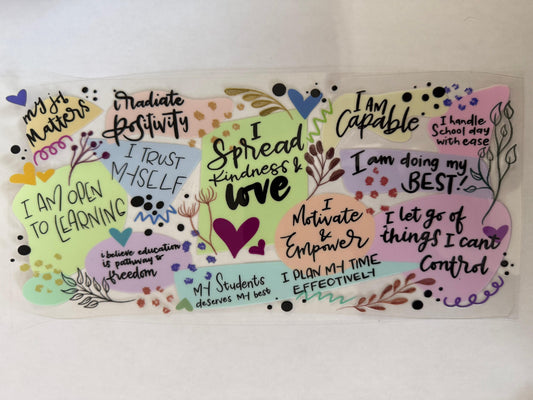 my job
Matters
i Radiate
Positivity
I TRUST
MYSELF
I AM OPEN
TO LEARNING
i believe education
is pathway to
freedom
I
Spread
Kindness &
Love
My Students
deserves my best
I
Motivate
&
Empower
I PLAN MY TIME
EFFECTIVELY
I AM
Capable
I handle
School day
with ease
I am doing my
BEST!
I let go of
things I cant
Control